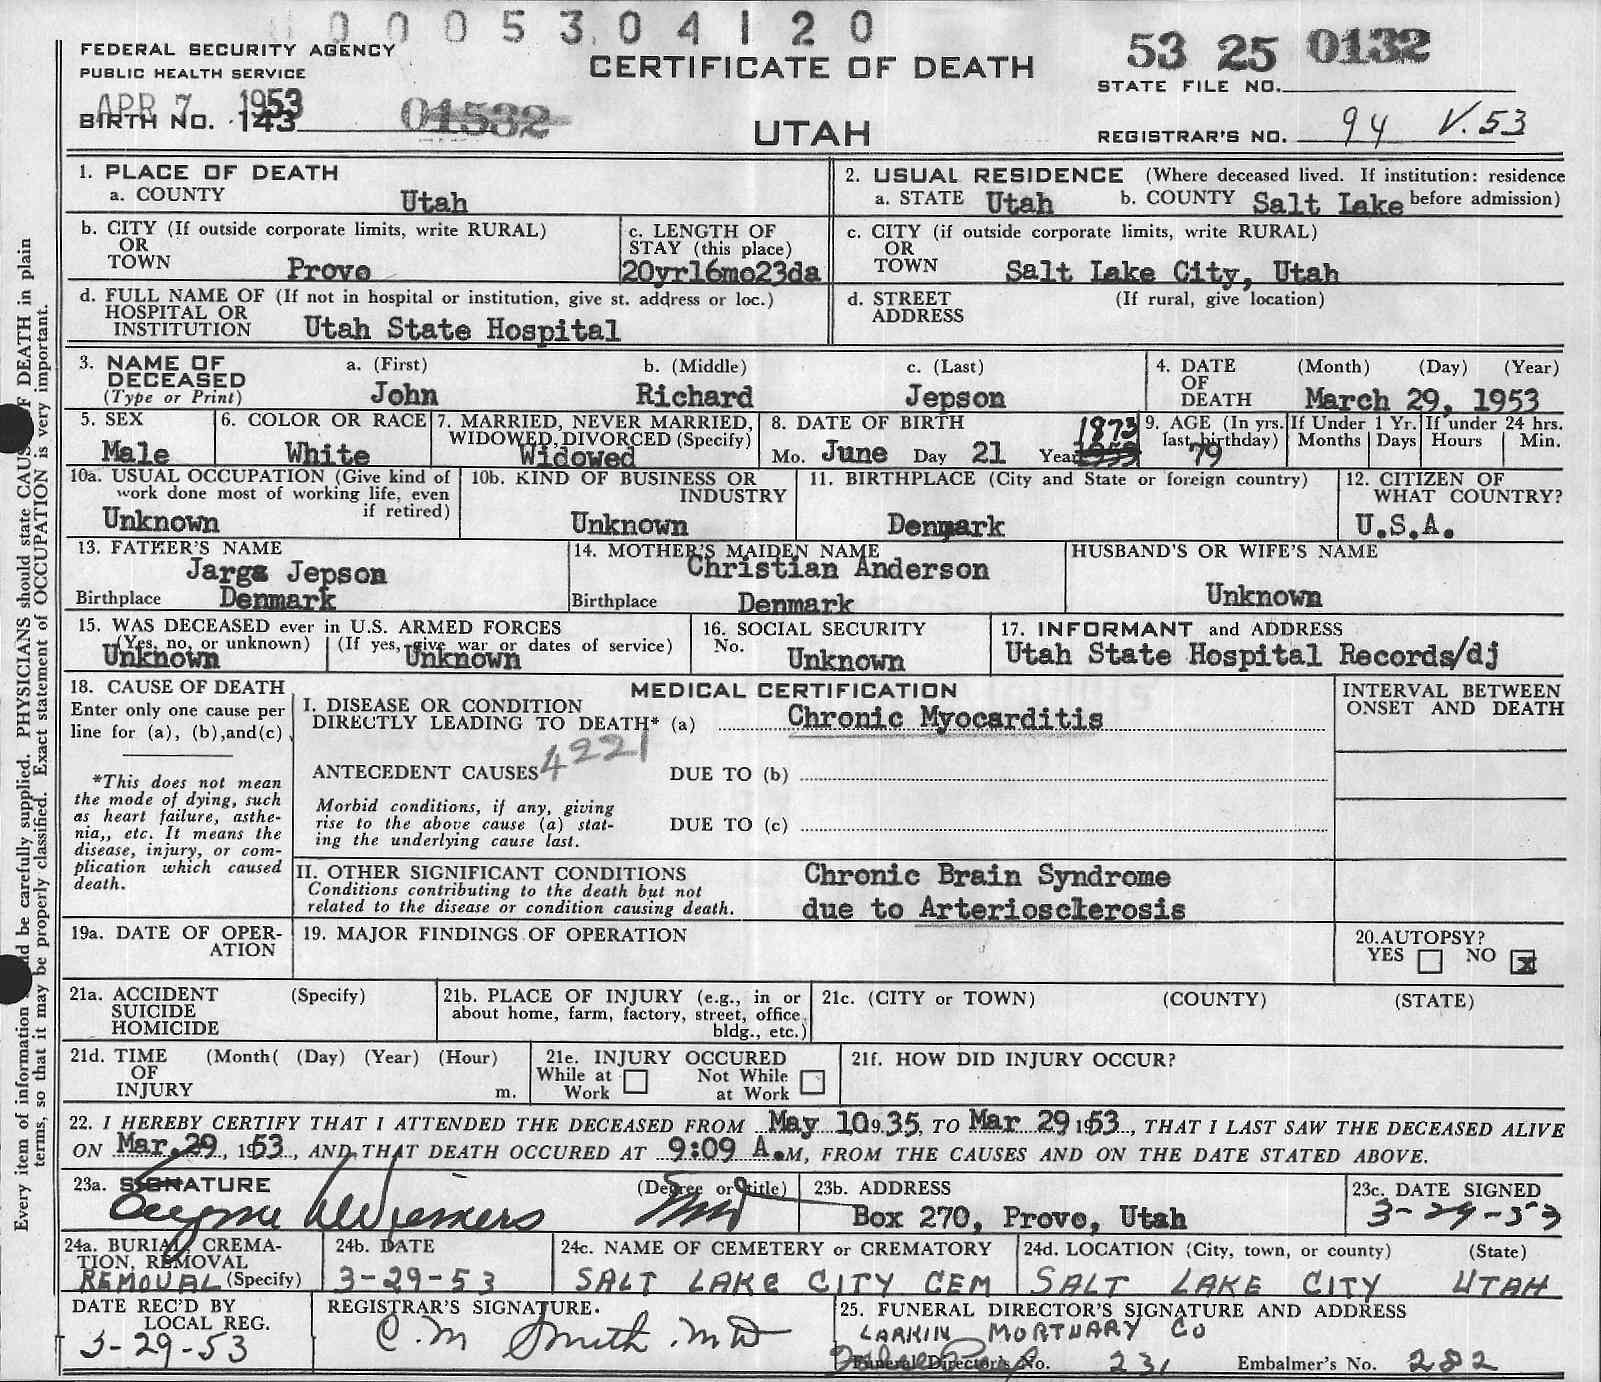 0005304120
FEDERAL SECURITY AGENCY
PUBLIC HEALTH SERVICE
CERTIFICATE OF DEATH
53 25 0132
STATE FILE NO.
APR 7 1953
BIRTH NO. 143
01532
UTAH
REGISTRAR'S NO. 94 V.53
1. PLACE OF DEATH
a. COUNTY Utah
2. USUAL RESIDENCE (Where deceased lived. If institution: residence before admission)
a. STATE Utah b. COUNTY Salt Lake
b. CITY (If outside corporate limits, write RURAL) OR TOWN Provo
c. LENGTH OF STAY (this place) 20yr16mo23da
c. CITY (if outside corporate limits, write RURAL) OR TOWN Salt Lake City, Utah
d. FULL NAME OF (If not in hospital or institution, give st. address or loc.)
HOSPITAL OR
INSTITUTION Utah State Hospital
d. STREET ADDRESS (If rural, give location)
3. NAME OF DECEASED (Type or Print)
a. (First) b. (Middle) c. (Last)
John Richard Jepson
4. DATE OF DEATH (Month) (Day) (Year)
March 29, 1953
5. SEX Male
6. COLOR OR RACE White
7. MARRIED, NEVER MARRIED, WIDOWED, DIVORCED (Specify) Widowed
8. DATE OF BIRTH
Mo. June Day 21 Year 1873
9. AGE (In yrs. last birthday) 79
If Under 1 Yr. Months Days
If under 24 hrs. Hours Min.
10a. USUAL OCCUPATION (Give kind of work done most of working life, even if retired)
Unknown
10b. KIND OF BUSINESS OR INDUSTRY
Unknown
11. BIRTHPLACE (City and State or foreign country)
Denmark
12. CITIZEN OF WHAT COUNTRY?
U.S.A.
13. FATHER'S NAME
Jargs Jepson
Birthplace Denmark
14. MOTHER'S MAIDEN NAME
Christian Anderson
Birthplace Denmark
HUSBAND'S OR WIFE'S NAME
Unknown
15. WAS DECEASED ever in U.S. ARMED FORCES
(Yes, no, or unknown) (If yes, give war or dates of service)
Unknown Unknown
16. SOCIAL SECURITY No. Unknown
17. INFORMANT and ADDRESS
Utah State Hospital Records/dj
18. CAUSE OF DEATH
Enter only one cause per line for (a), (b), and (c)
*This does not mean the mode of dying, such as heart failure, asthenia,, etc. It means the disease, injury, or complication which caused death.
MEDICAL CERTIFICATION
I. DISEASE OR CONDITION DIRECTLY LEADING TO DEATH* (a) Chronic Myocarditis
4221
ANTECEDENT CAUSES DUE TO (b)
Morbid conditions, if any, giving rise to the above cause (a) stating the underlying cause last.
DUE TO (c)
INTERVAL BETWEEN ONSET AND DEATH
II. OTHER SIGNIFICANT CONDITIONS
Conditions contributing to the death but not related to the disease or condition causing death.
Chronic Brain Syndrome
due to Arteriosclerosis
19a. DATE OF OPERATION
19. MAJOR FINDINGS OF OPERATION
20. AUTOPSY?
YES NO x
21a. ACCIDENT SUICIDE HOMICIDE (Specify)
21b. PLACE OF INJURY (e.g., in or about home, farm, factory, street, office bldg., etc.)
21c. (CITY or TOWN) (COUNTY) (STATE)
21d. TIME OF INJURY (Month( (Day) (Year) (Hour) m.
21e. INJURY OCCURED While at Work Not While at Work
21f. HOW DID INJURY OCCUR?
22. I HEREBY CERTIFY THAT I ATTENDED THE DECEASED FROM May 10 9.35, TO Mar 29 1953, THAT I LAST SAW THE DECEASED ALIVE
ON Mar. 29, 1953, AND THAT DEATH OCCURED AT 9:09 A.M, FROM THE CAUSES AND ON THE DATE STATED ABOVE.
23a. SIGNATURE (Degree or title)
MD
23b. ADDRESS
Box 270, Provo, Utah
23c. DATE SIGNED
3-29-53
24a. BURIAL, CREMATION, REMOVAL (Specify)
REMOVAL
24b. DATE
3-29-53
24c. NAME OF CEMETERY or CREMATORY
SALT LAKE CITY CEM
24d. LOCATION (City, town, or county) (State)
SALT LAKE CITY UTAH
DATE REC'D BY LOCAL REG.
3-29-53
REGISTRAR'S SIGNATURE.
C. M Smith. MD
25. FUNERAL DIRECTOR'S SIGNATURE AND ADDRESS
LARKIN MORTUARY CO
Funeral Director's No. 231 Embalmer's No. 282
Every item of information be carefully supplied. PHYSICIANS should state CAUSE OF DEATH in plain
terms, so that it may be properly classified. Exact statement of OCCUPATION is very important.